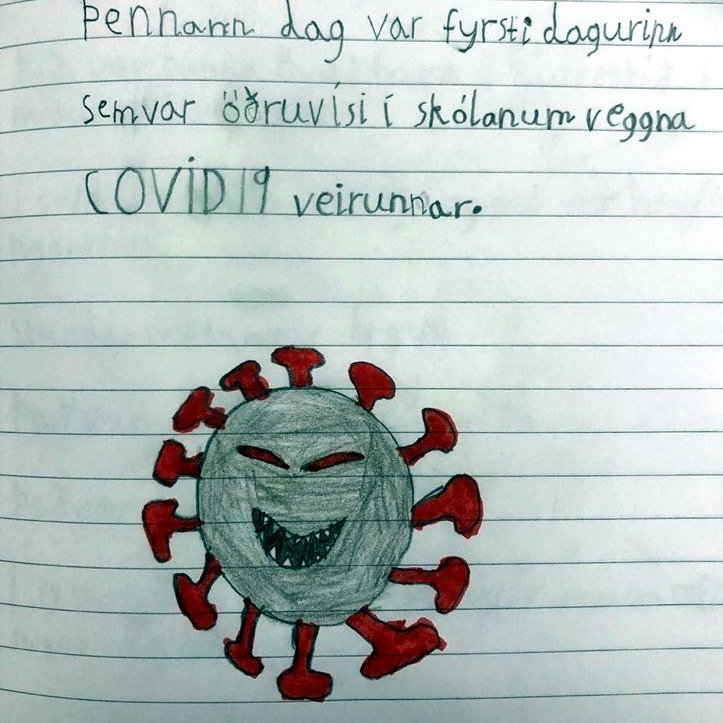 Þennann dag var fyrsti dagurinn
sem var öðruvísi í skólanum veggna
COVID19 veirunnar.